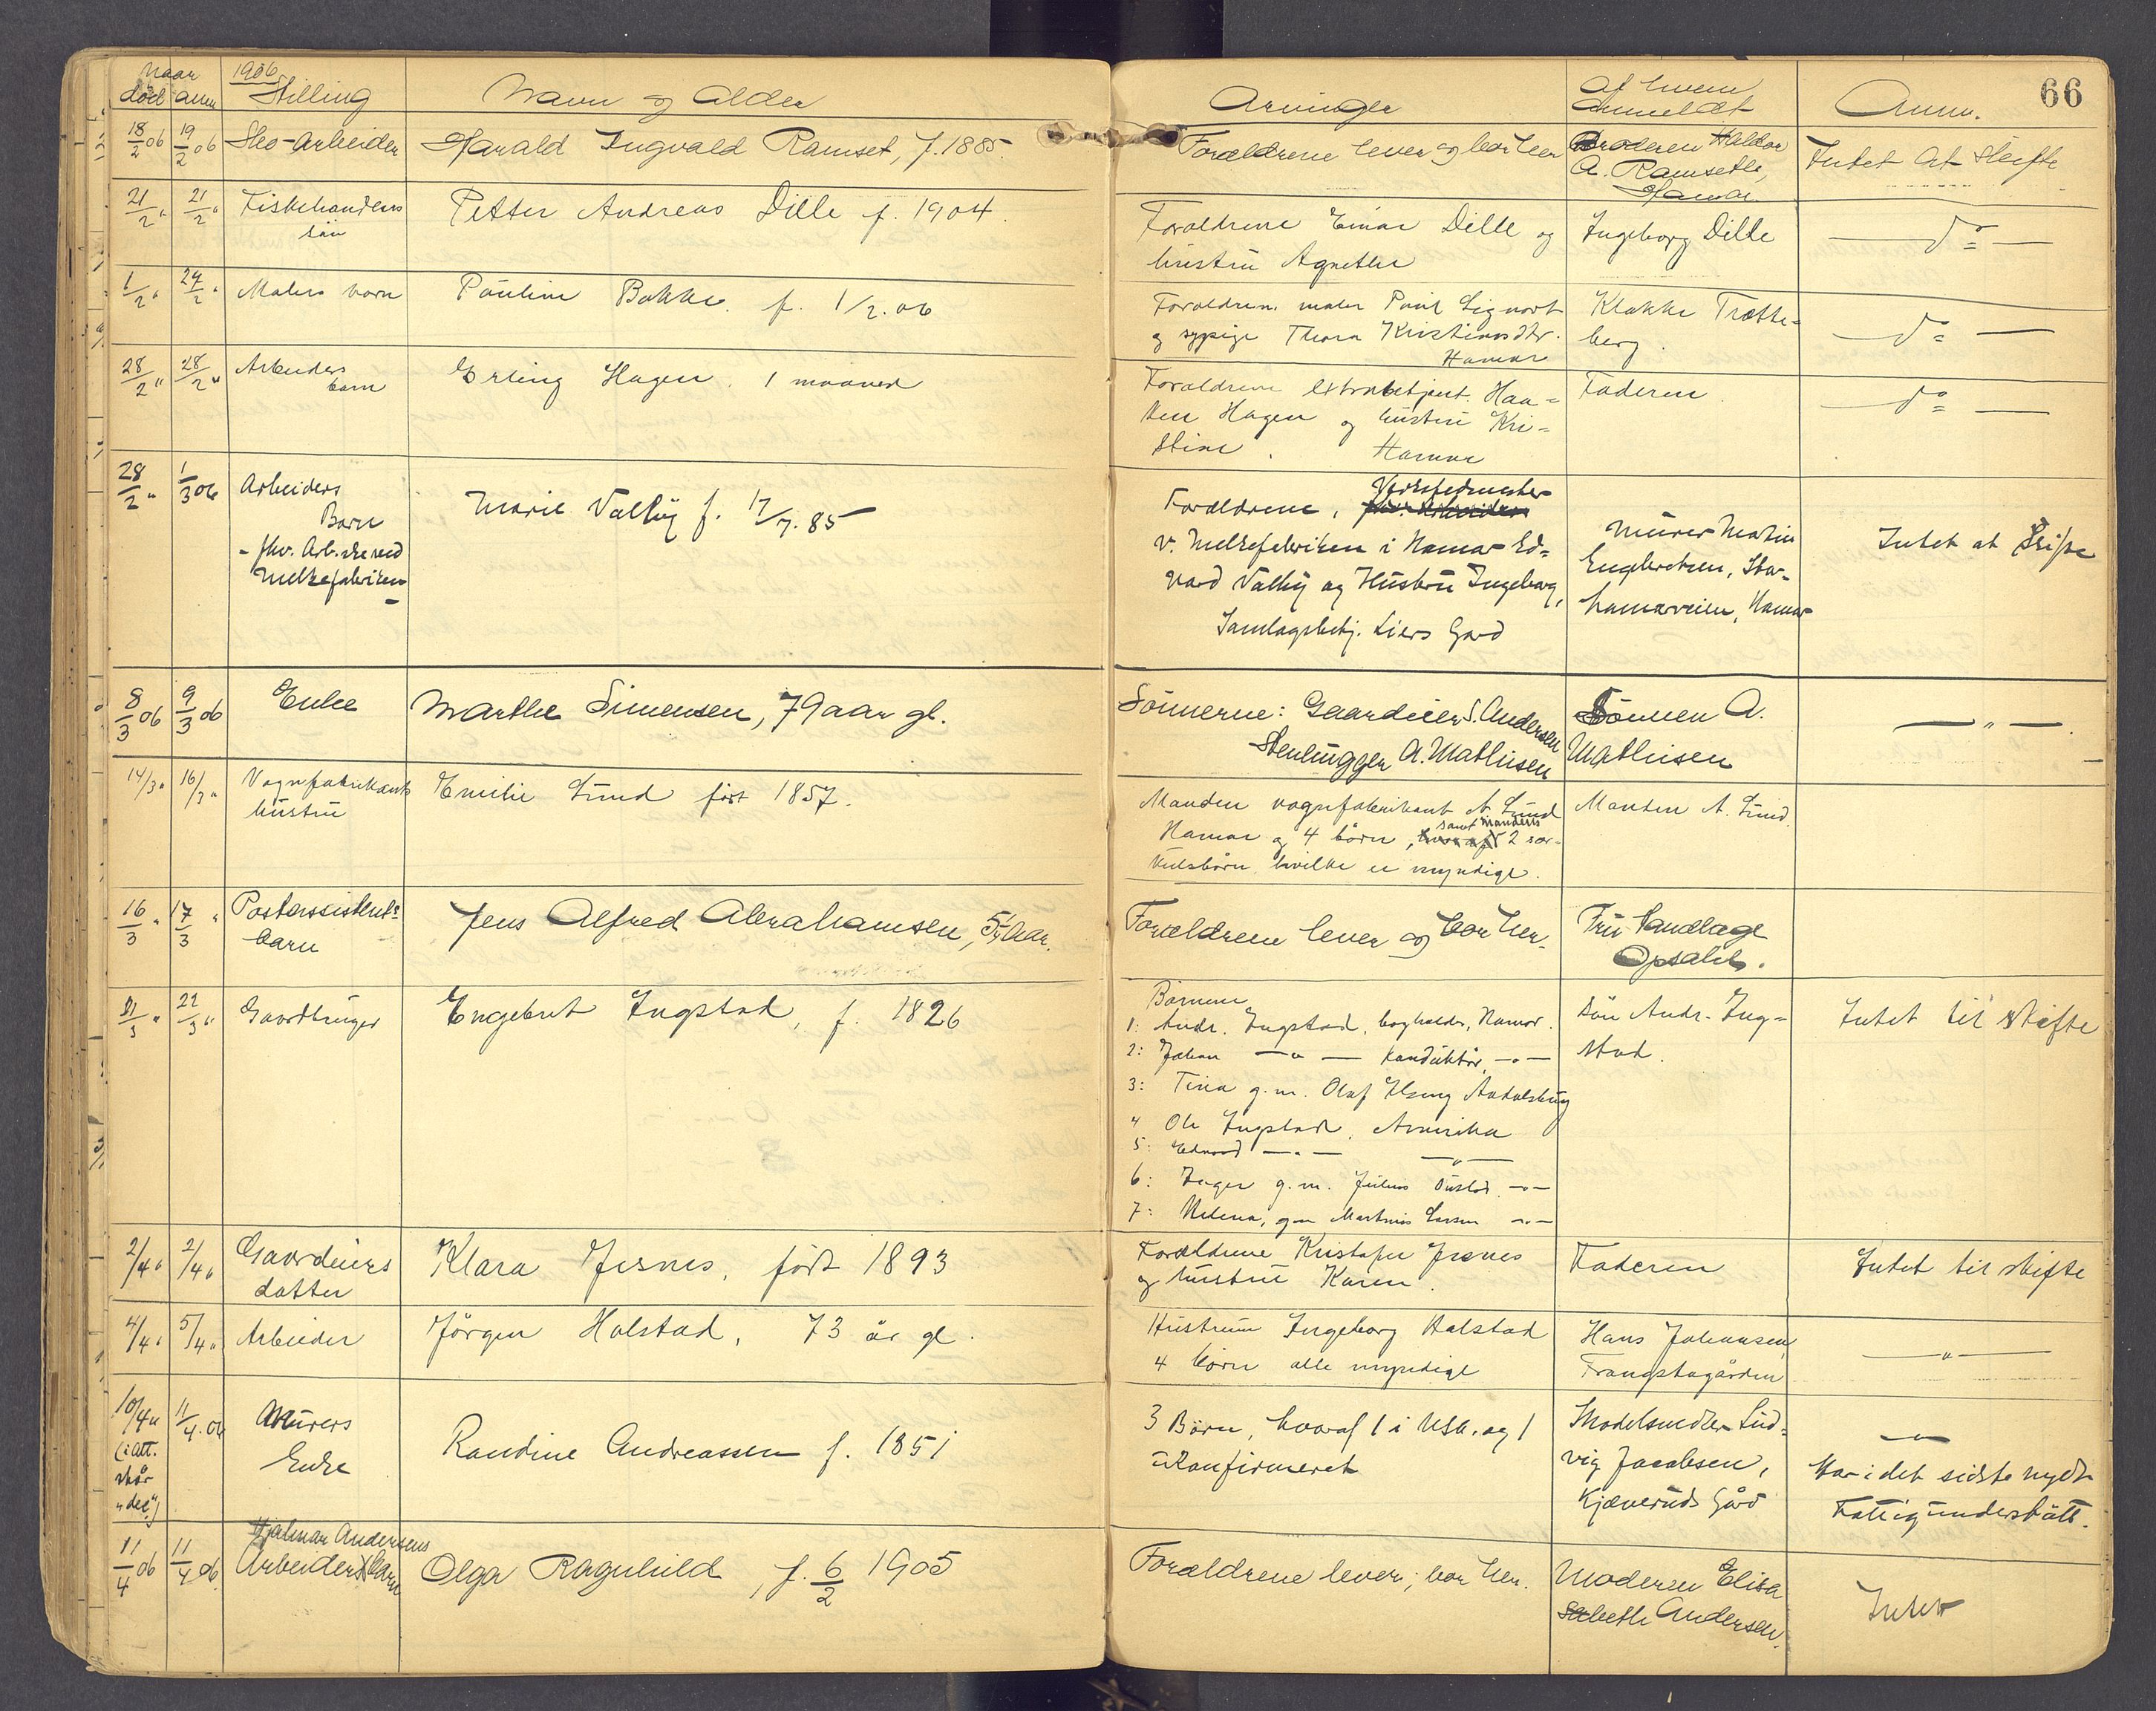 66
Naar 1906
død anm Stilling Navn og Alder Arvinger Af hvem anmeldt Anm.
18/2 06 19/2 06 Sko-Arbeider Harald Ingvald Ramset, f. 1885. Forældrene lever og bor her Broderen Haldor Intet at skifte
A. Ramseth,
Hamar.
21/2 " 21/2 " Fiskehandlers Petter Andreas Dille f. 1904. Forældrene Einar Dille og Ingeborg Dille — do —
søn hustru Agnethe
1/2 " 24/2 " Malers barn Pauline Bakke. f. 1/2.06 Forældrene maler Paul Sigvart Klokke Trætte= — do —
og sypige Thora Kristiansdtr. berg.
Hamar
28/2 " 28/2 " Arbeiders Erling Hagen. 1 maaned Forældrene extrabetjent. Haa= Faderen — do —
barn ken Hagen og hustru Kri=
stine. Hamar
28/2 " 1/3 06 Arbeiders Marie Valby f. 17/7.85 Forældrene, Verksfedmester
Barn v. Melkefabriken i Hamar Ed= Murer Martin Intet at Skifte
- fhv. Arb.ske ved vard Valby og Hustru Ingeborg, Engebretsen, Stor-
Melkefabriken - Samlagsbetj. Liers Gård hamarveien, Hamar
8/3 06 9/3 06 Enke Marthe Simensen, 79 aar gl. Sønnerne: Gaardeier S. Andersen Sønnen A. — " —
Stenhugger A. Mathisen Mathisen
14/3 " 16/3 " Vognfabrikants Emilie Lund født 1857. Manden vognfabrikant A. Lund Manden A. Lund.
hustru Hamar og 4 børn, samt mandens 2 sær-
kulsbørn hvilke er myndige.
16/3 " 17/3 " Postassistents Jens Alfred Abrahamsen, 5½ Aar. Forældrene lever og bor her. Fru Sandlage
barn Opsahl.
21/3 " 22/3 " Gaardbruger Engebret Ingstad, f. 1826 Børnene Søn Andr. Ing= Intet til skifte
1: Andr. Ingstad, bogholder, Hamar. stad.
2: Johan — " — konduktør — " —
3: Tina g.m. Olaf
4 Ole Ingstad, Amerika
5: Edvard — " — — " —
6: Inger g.m. Julius — " —
7: Helena, gm Martinus Larsen — " —
2/4 " 2/4 " Gaardeiers Klara Jesnes, født 1893 Forældrene Kristofer Jesnes Faderen Intet til skifte
datter og hustru Karen.
4/4 " 5/4 " Arbeider Jørgen Halstad, 73 år gl. Hustruen Ingeborg Halstad Hans Johansen — " —
4 børn alle myndige Frangstagården
10/4 " 11/4.06 Murers Randine Andreassen f. 1851 3 Børn, hvoraf 1 i USA. og 1 Skodelsmedlem Lud= — " —
(i Att. Enke ukonfirmeret vig Jacobsen, Har i det sidste nydt
står Kjæveruds Gård Fattigunderstått.
"dec")
11/4 06 11/4 06. Hjalmar Andersens
Arbeiders Barn Olga Ragnhild, f. 6/2 1905 Forældrene lever; bor her. Moderen Elisa Intet
sabeth Andersen.